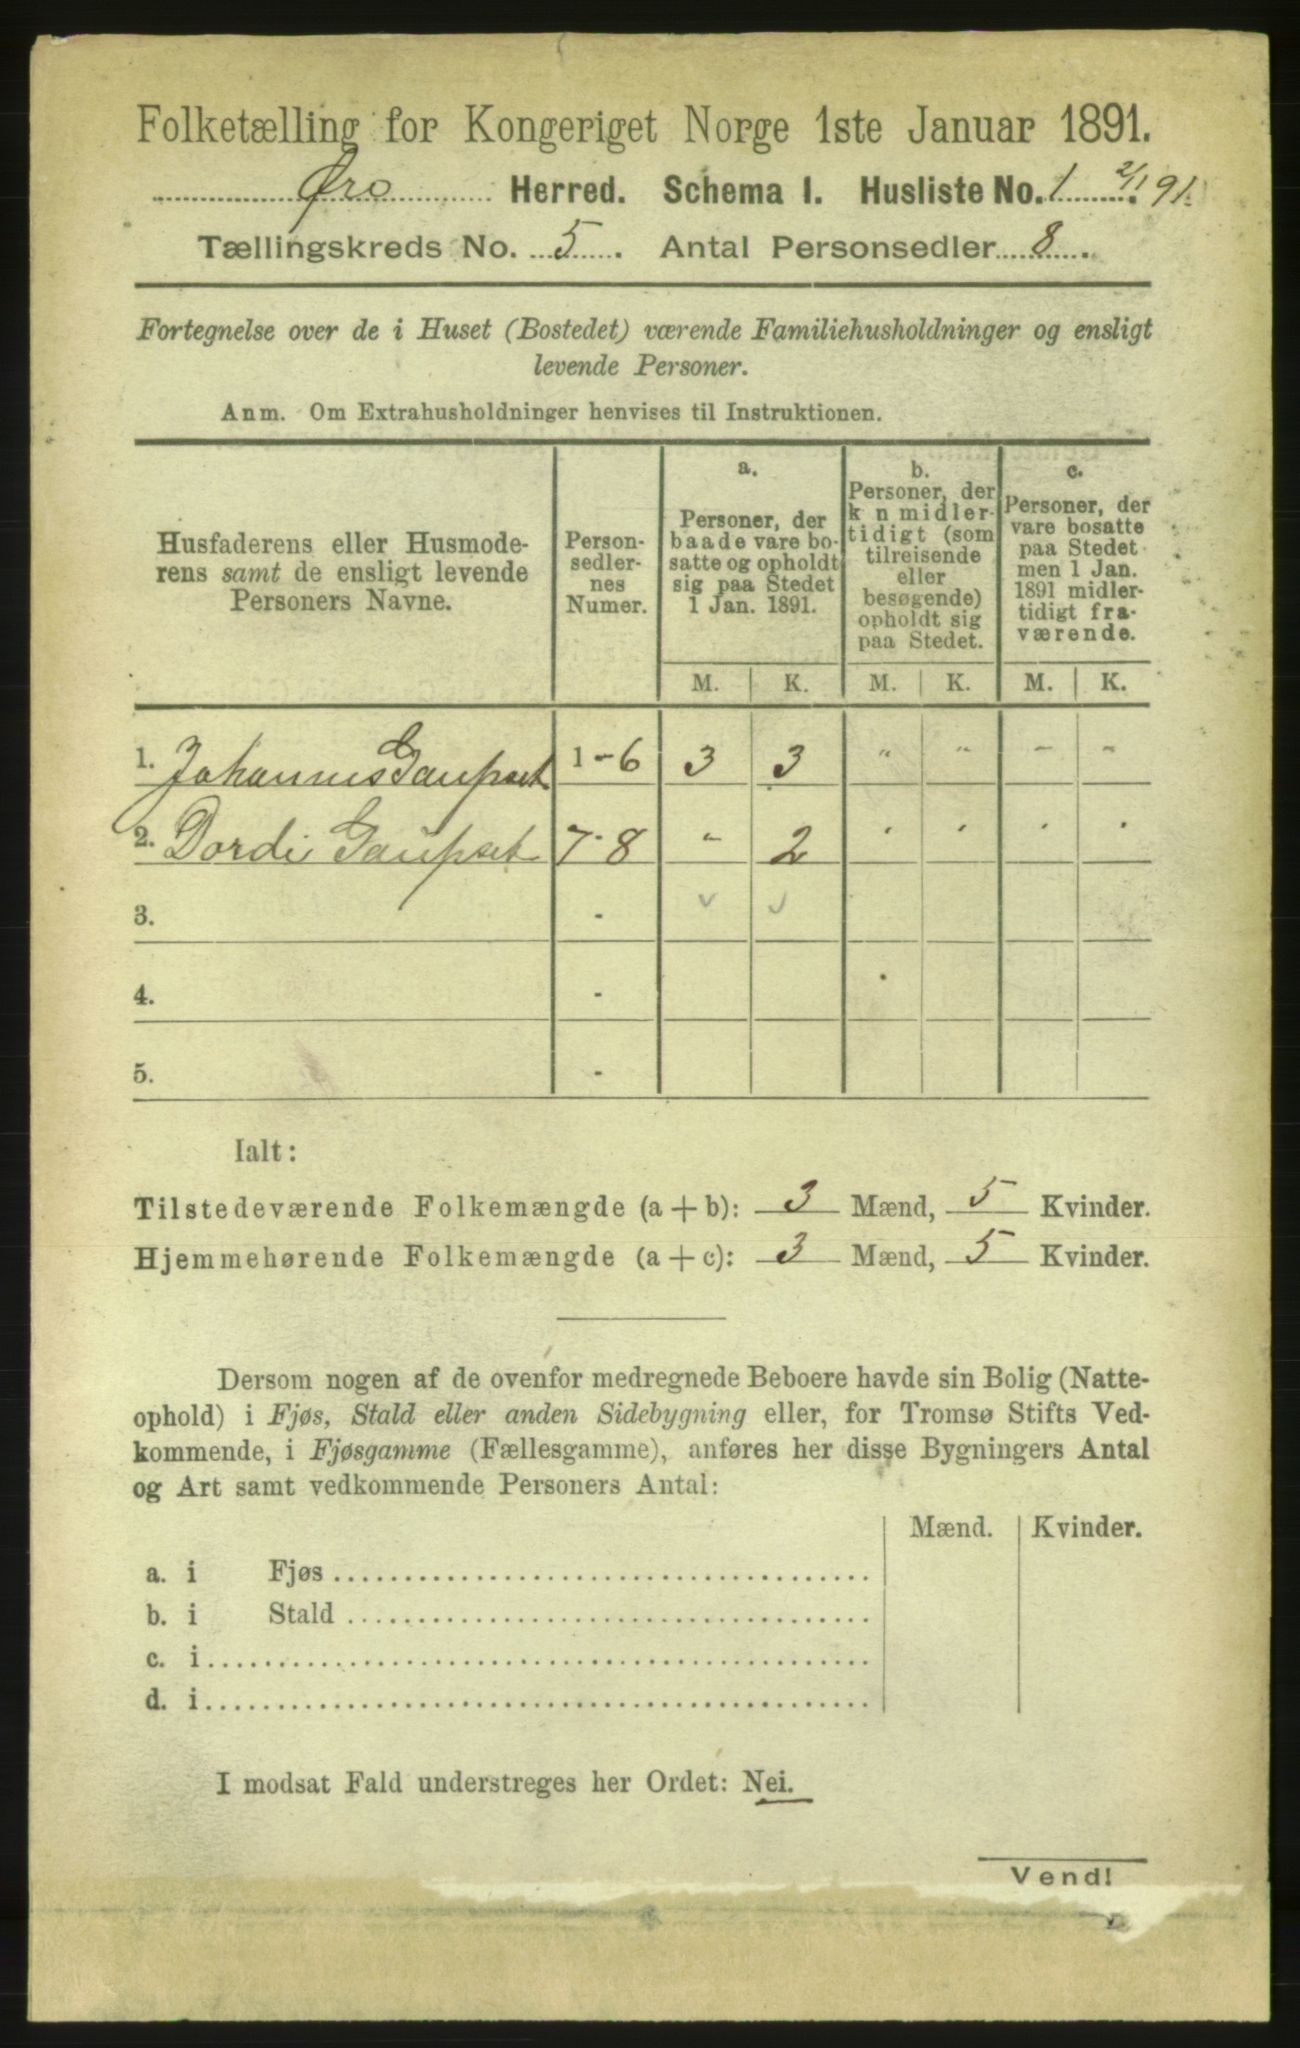 Folketælling for Kongeriget Norge 1ste Januar 1891.
Øre Herred. Schema I. Husliste No. 1 2/1 91.
Tællingskreds No. 5. Antal Personsedler 8.
Fortegnelse over de i Huset (Bostedet) værende Familiehusholdninger og ensligt
levende Personer.
Anm. Om Extrahusholdninger henvises til Instruktionen.
Husfaderens eller Husmode-
rens samt de ensligt levende
Personers Navne.
Person-
sedler-
nes
Numer.
a.
Personer, der
baade vare bo-
satte og opholdt
sig paa Stedet
1 Jan. 1891.
b.
Personer, der
k n midler-
tidigt (som
tilreisende
eller
besøgende)
opholdt sig
paa Stedet.
c.
Personer, der
vare bosatte
paa Stedet
men 1 Jan.
1891 midler-
tidigt fra-
værende.
M. K. M. K. M. K.
1. Johannes Gaupset 1-6 3 3 " " - -
2. Dordi Gaupset 7-8 - 2 " " " "
3. -
4. -
5. -
Ialt:
Tilstedeværende Folkemængde (a + b): 3 Mænd, 5 Kvinder.
Hjemmehørende Folkemængde (a + c): 3 Mænd, 5 Kvinder.
Dersom nogen af de ovenfor medregnede Beboere havde sin Bolig (Natte-
ophold) i Fjøs, Stald eller anden Sidebygning eller, for Tromsø Stifts Ved-
kommende, i Fjøsgamme (Fællesgamme), anføres her disse Bygningers Antal
og Art samt vedkommende Personers Antal:
Mænd. Kvinder.
a. i Fjøs
b. i Stald
c. i
d. i
I modsat Fald understreges her Ordet: Nei.
Vend!